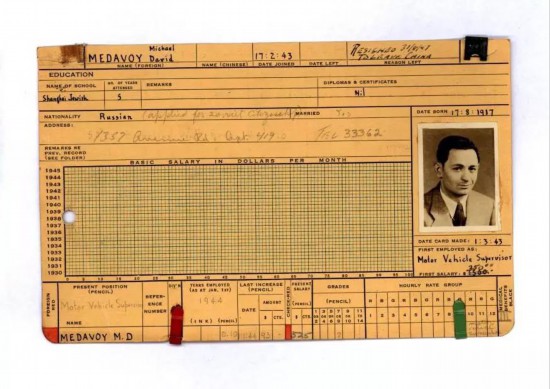 Michael
MEDAVOY David 17·2·43 RESIGNED 31/8/48
NAME (FOREIGN) NAME (CHINESE) DATE JOINED DATE LEFT REASON LEFT
EDUCATION
NAME OF SCHOOL NO. OF YEARS ATTENDED REMARKS DIPLOMAS & CERTIFICATES
Shanghai Jewish 5 Nil
NATIONALITY Russian (applied for soviet citizenship) MARRIED Yes DATE BORN 17·8·1917
ADDRESS:
TEL 33362
REMARKS RE PREV. RECORD (SEE FOLDER)
BASIC SALARY IN DOLLARS PER MONTH
1945
1944
1943
1942
1941
1940
1939
1938
1937
1936
1935
1934
1933
1932
1931
1930
DATE CARD MADE: 1·3·43
FIRST EMPLOYED AS:
Motor Vehicle Supervisor
FIRST SALARY:
FOREIGN MED
PRESENT POSITION (PENCIL)
Motor Vehicle Supervisor
NAME
REFERENCE NUMBER
YEARS EMPLOYED
1944
(INK) (PENCIL)
LAST INCREASE (PENCIL)
DATE AMOUNT $ CTS.
PRESENT SALARY
$ CTS.
525
GRADES
(PENCIL)
HOURLY RATE GROUP
MEDICAL BENEFITS PLACE
MEDAVOY M.D